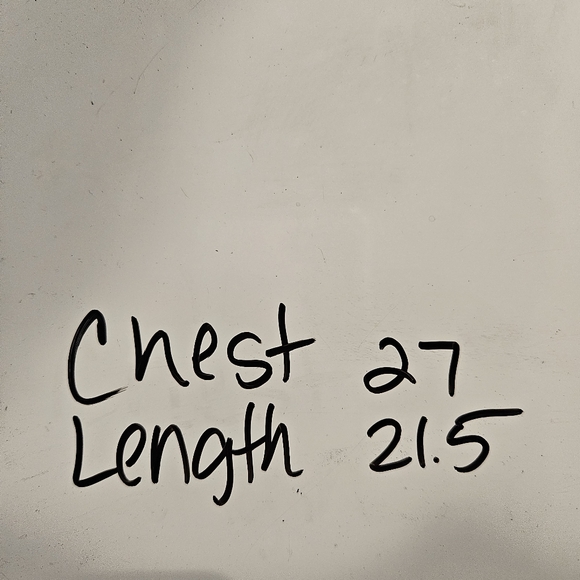 Chest 27
Length 21.5